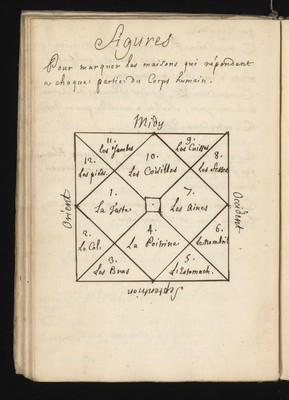 Figures
Pour marquer les maisons qui repondent
a chaque partie du Corps humain.
Midy
11.
les Jambes
9.
Les Cuisses
12.
Les pieds.
10.
Les
8.
les fesses
1.
La Teste
7.
Les Aines
Orient
Occident
2.
le Col.
4.
La Poitrine
6.
le nombril
3.
Les Bras
5.
L'Estomach.
Septentrion